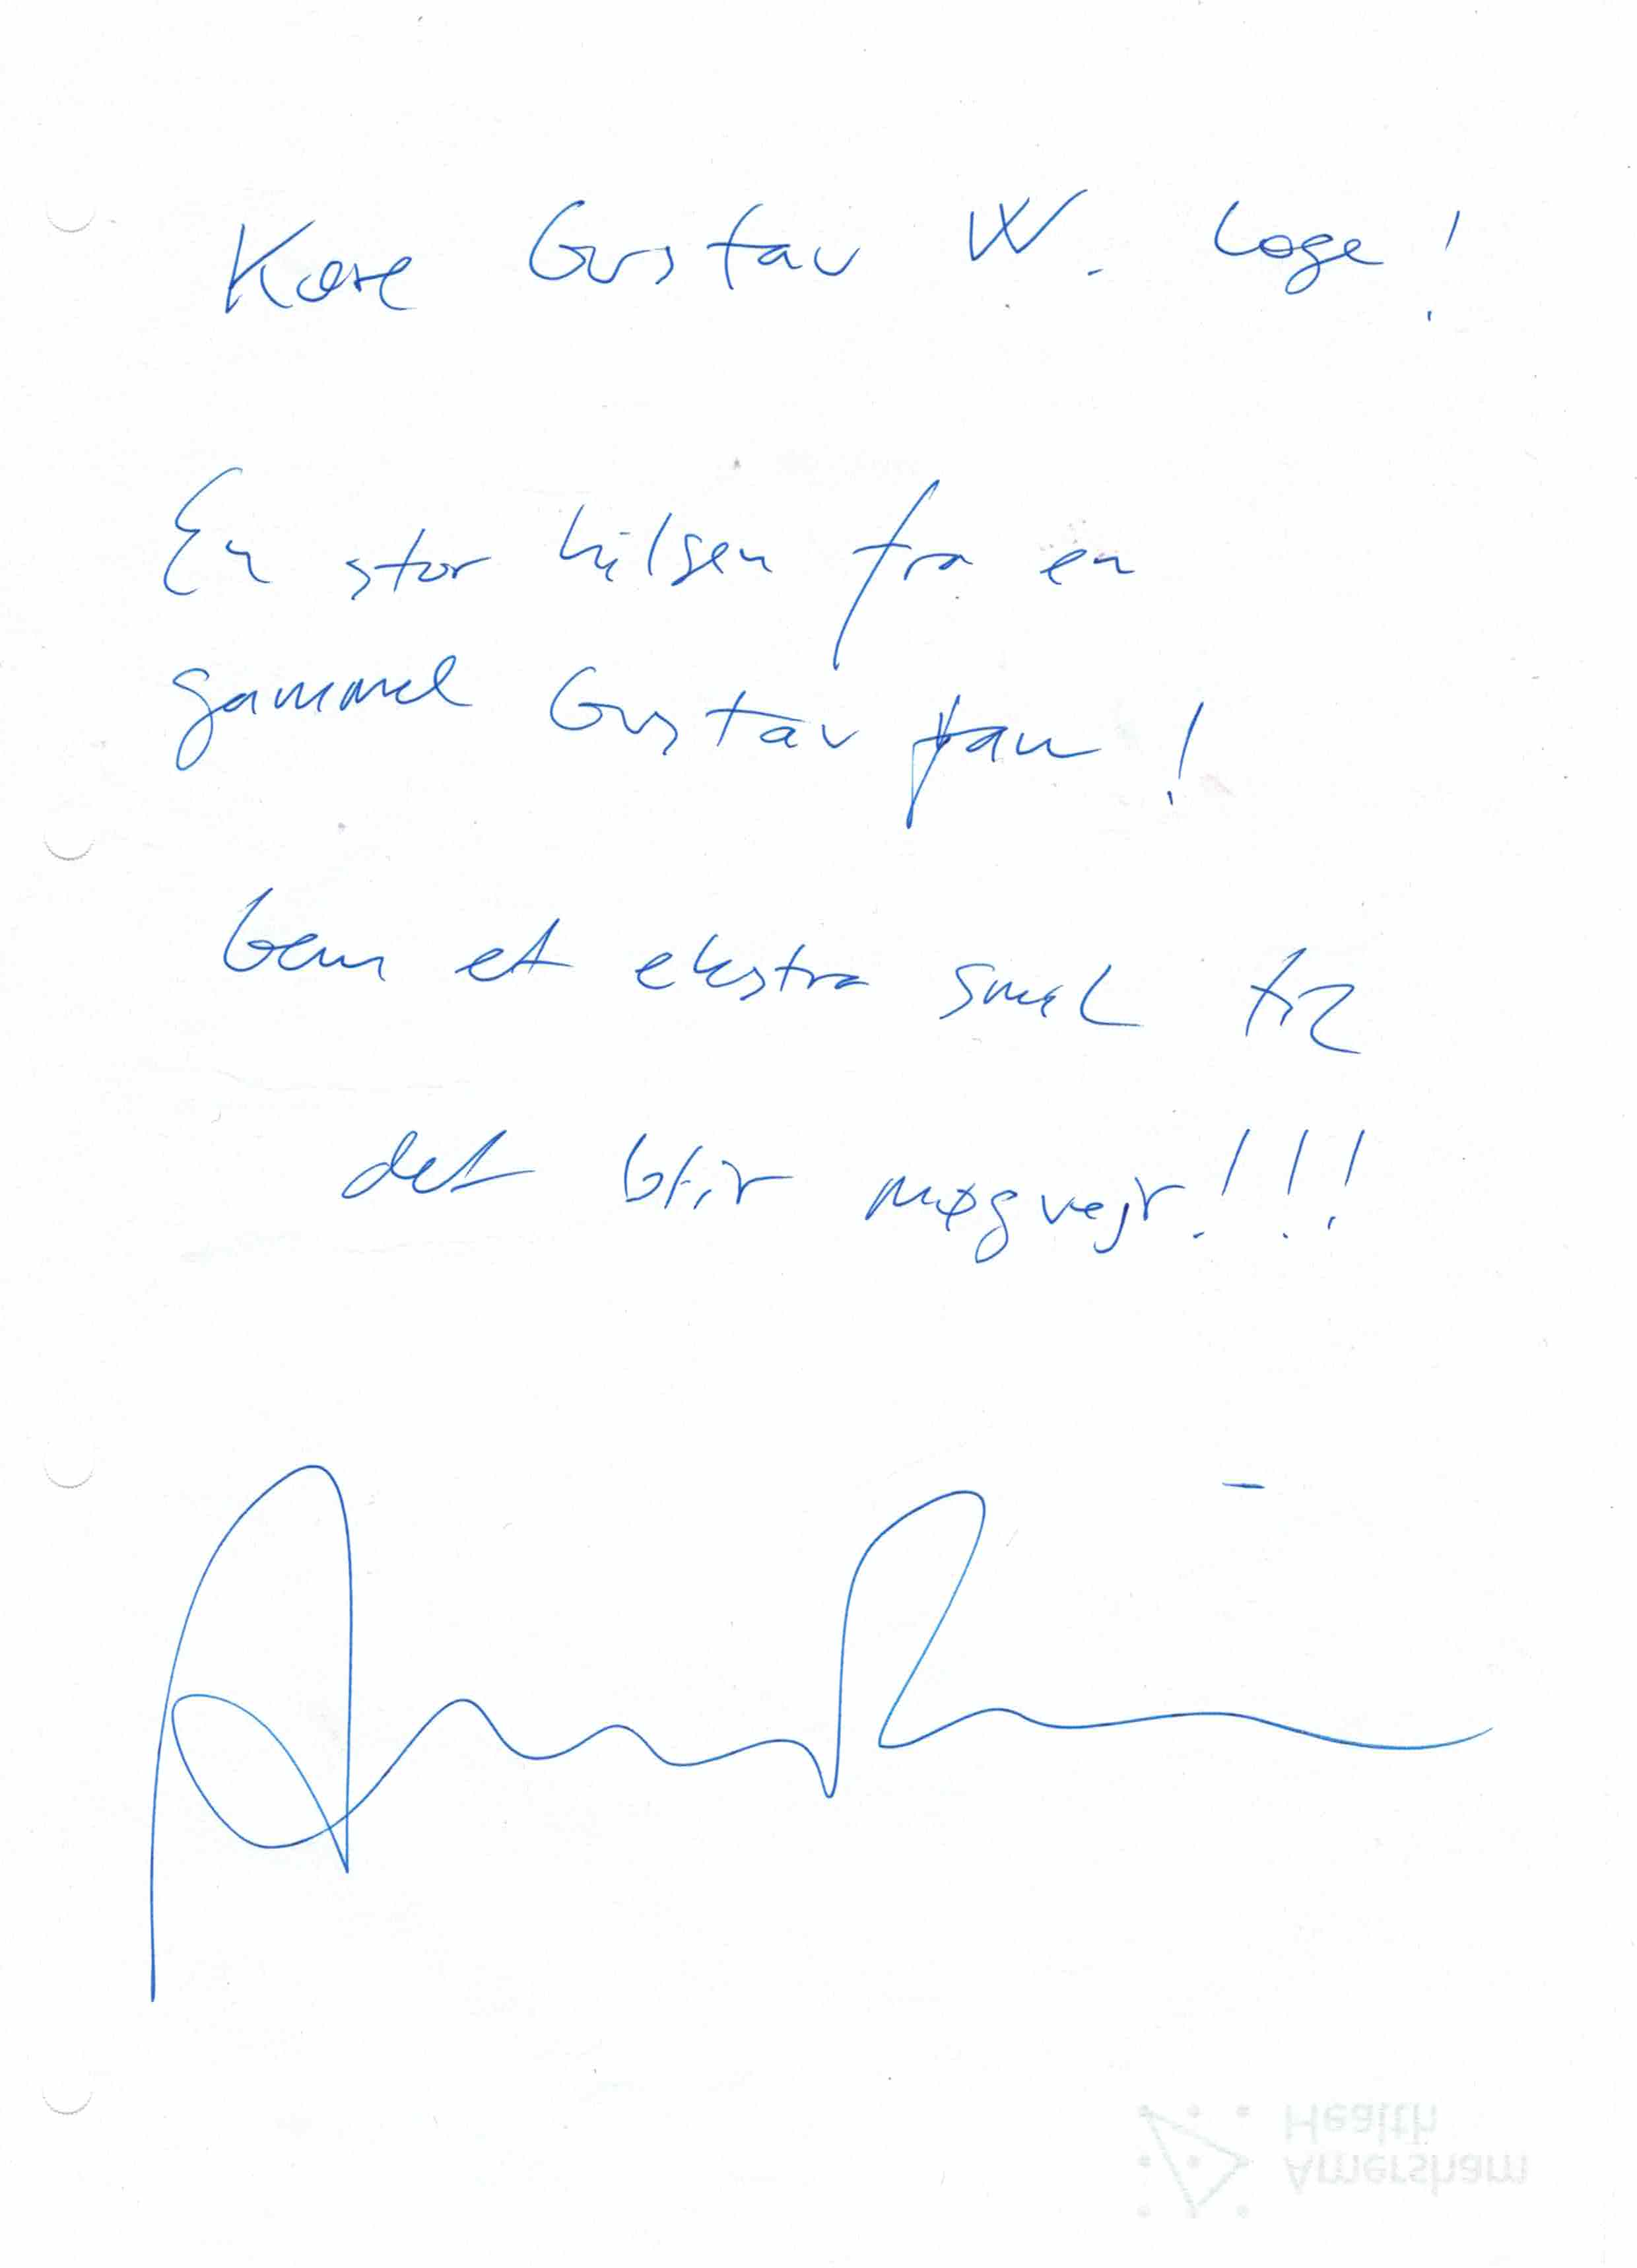 Kære Gustav W. Loge!
En stor hilsen fra en
gammel Gustav fan!
Gem et ekstra smil til
det blir møgvejr!!!
Health
Amersham